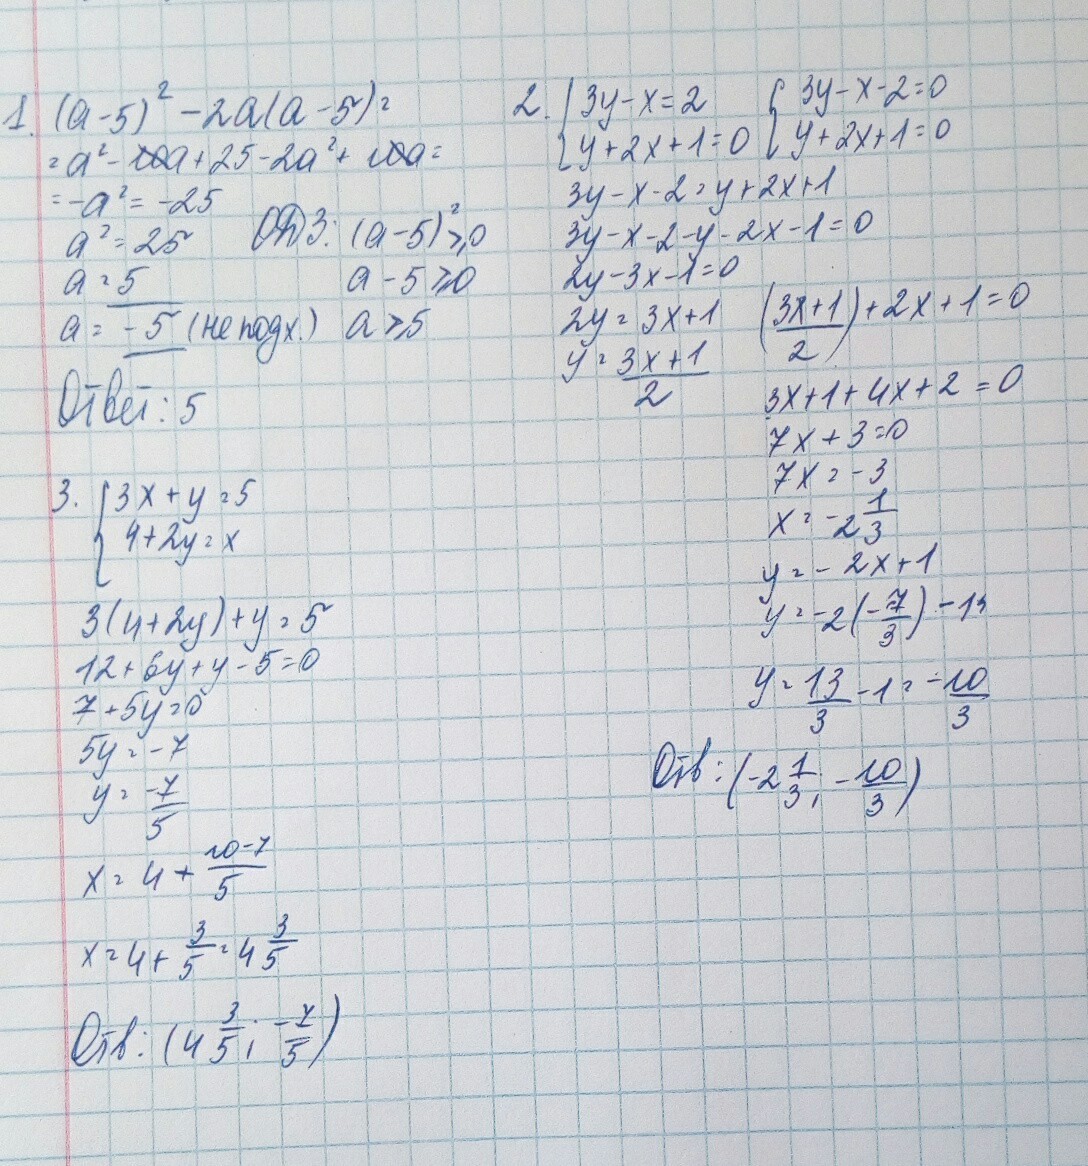 1. (a-5)² - 2a(a-5) =
= a² - 10a + 25 - 2a² + 10a =
= -a² = -25
a² = 25
a = 5
a = -5 (не подх.)
ОДЗ: (a-5)² ≥ 0
a - 5 ≥ 0
a ≥ 5
Ответ: 5
2. { 3y - x = 2
y + 2x + 1 = 0
{ 3y - x - 2 = 0
y + 2x + 1 = 0
3y - x - 2 = y + 2x + 1
3y - x - 2 - y - 2x - 1 = 0
2y - 3x - 1 = 0
2y = 3x + 1
y = (3x + 1)/2
((3x + 1)/2) + 2x + 1 = 0
3x + 1 + 4x + 2 = 0
7x + 3 = 0
7x = -3
x = -2 1/3
y = -2x + 1
y = -2(-7/3) - 1
y = 13/3 - 1 = -10/3
Отв: (-2 1/3; -10/3)
3. { 3x + y = 5
4 + 2y = x
3(4 + 2y) + y = 5
12 + 6y + y - 5 = 0
7 + 5y = 0
5y = -7
y = -7/5
x = 4 + (10-7)/5
x = 4 + 3/5 = 4 3/5
Отв: (4 3/5; -7/5)